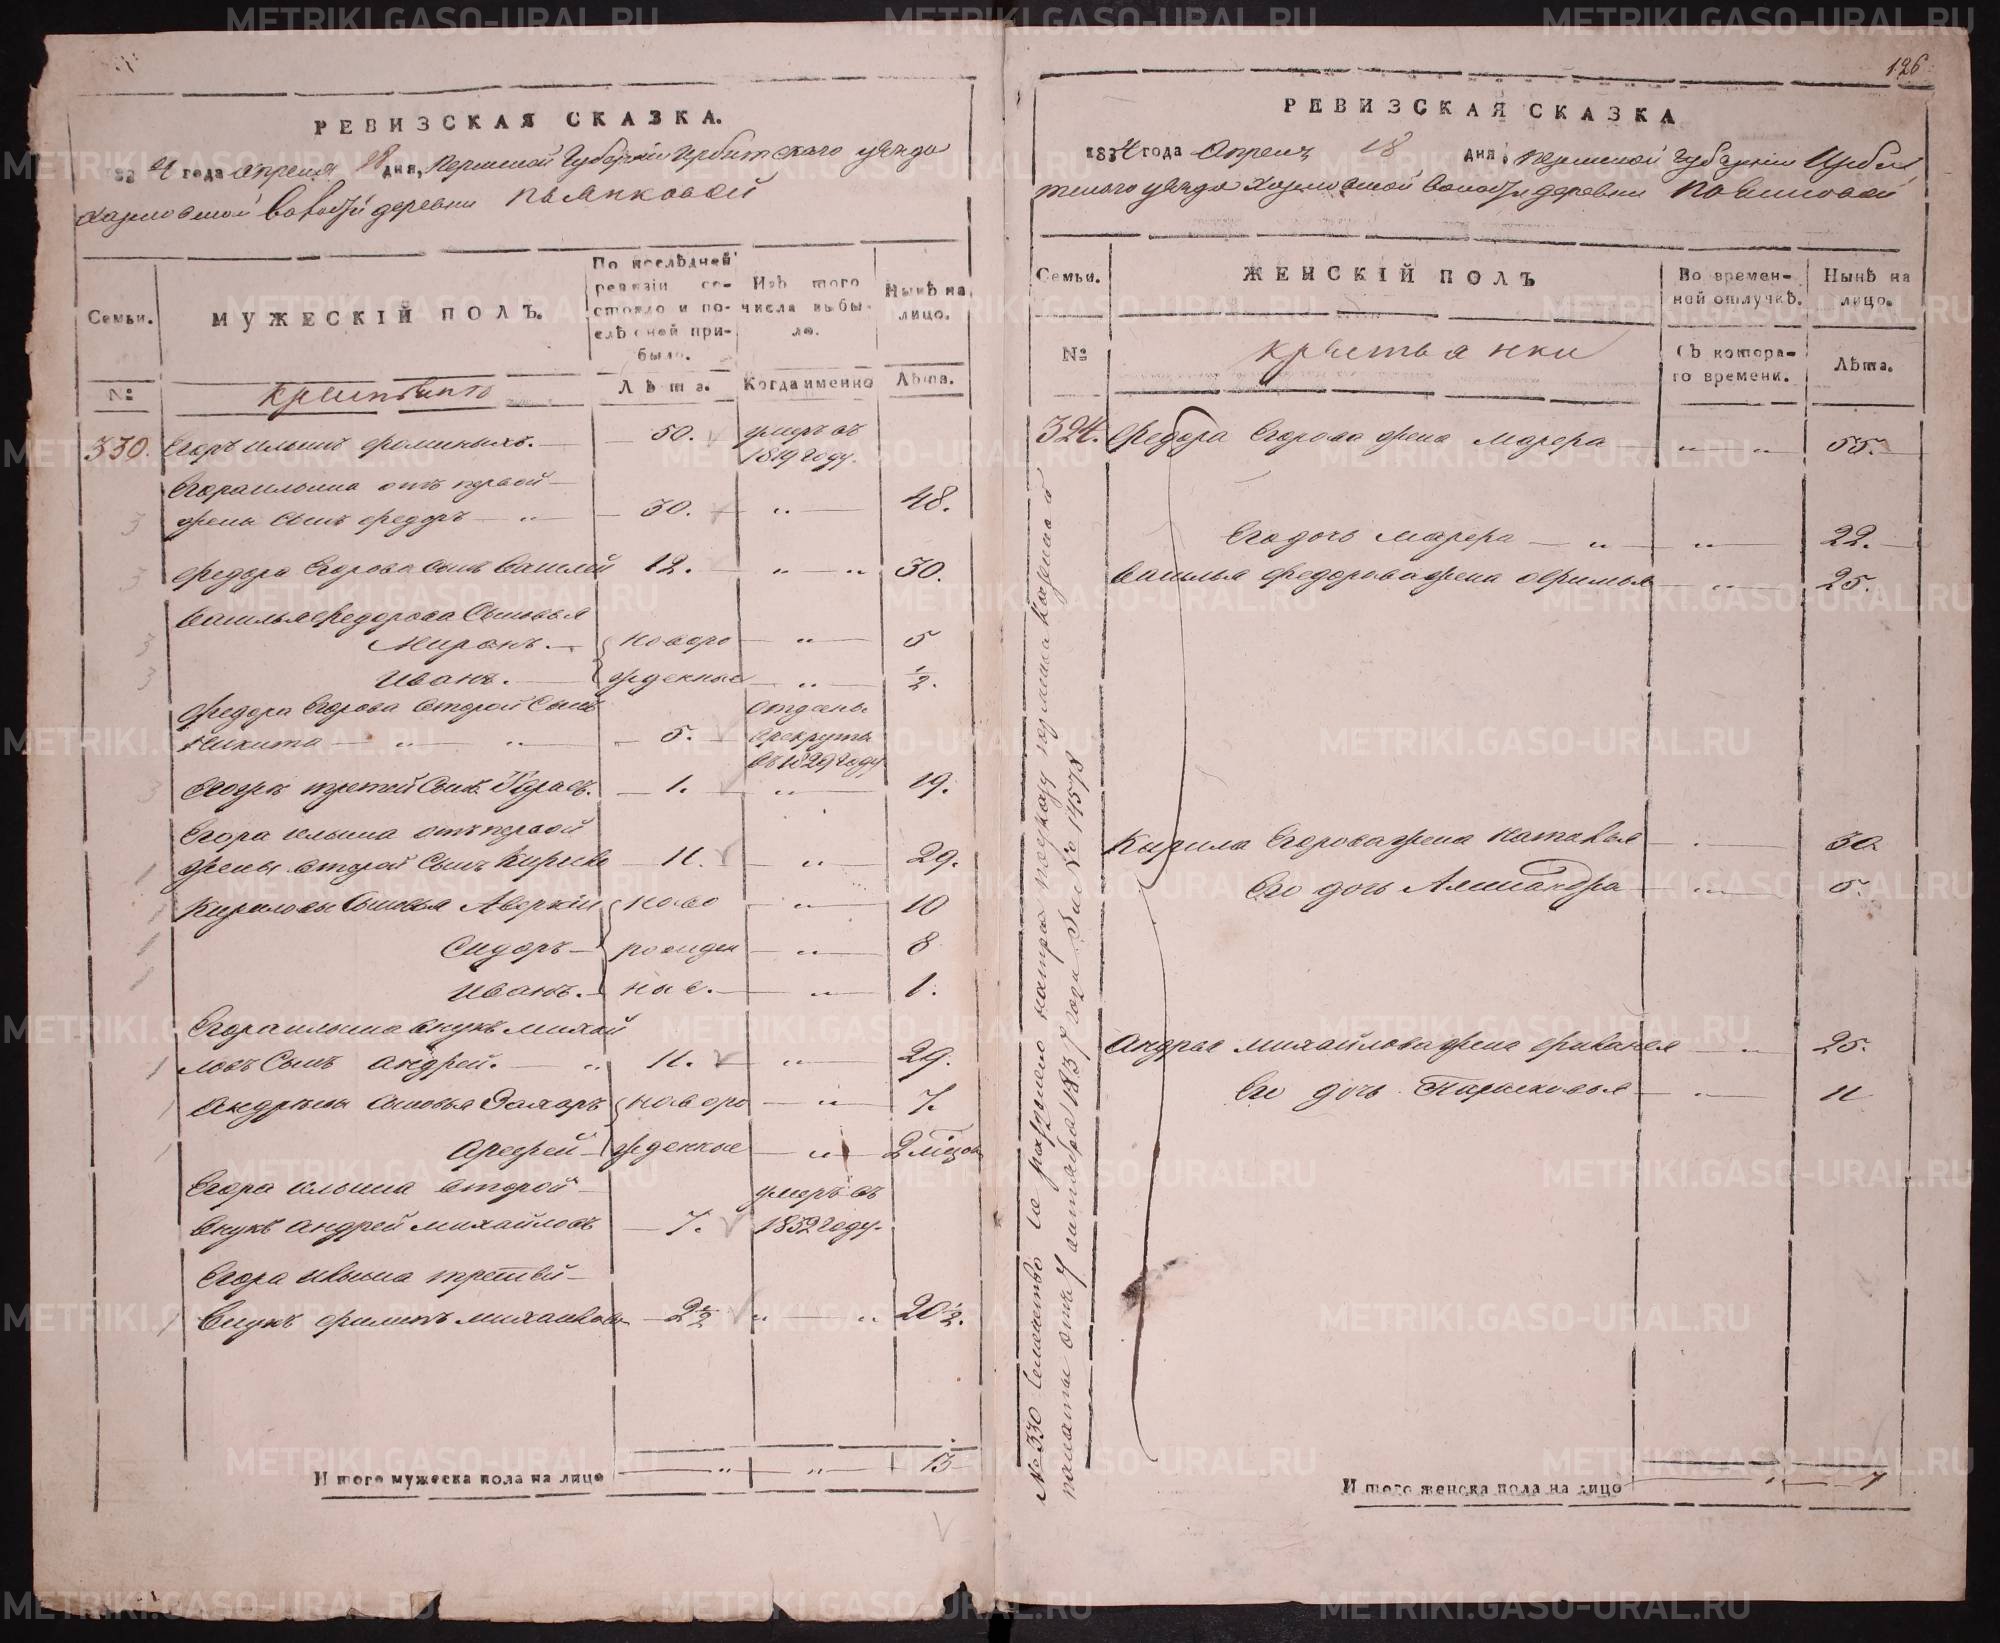 126
РЕВИЗСКАЯ СКАЗКА.
1834 года апреля 18 дня, Пермской Губернии Ирбитского уезда
Харловской волости деревни
Семьи.
МУЖЕСКІЙ ПОЛЪ.
По послѣдней ревизіи состояло и послѣ оней прибыло.
Изъ того числа выбыло.
Нынѣ на лицо.
№
Крестьяне
Лѣта.
Когда именно
Лѣта.
330. Егоръ Ильинъ Фоминыхъ. — 50. умеръ въ
1819 году.
Егора Ильина отъ первой
жены сынъ Федоръ — 30. — „ — 48.
Федора Егорова сынъ Василей 12. — „ — „ 30.
Василья Федорова сыновья
Миронъ. — новоро — „ — 5
Иванъ. — жденные — „ — ½.
Федора Егорова второй сынъ отданъ
Никита — „ — „ 5. в рекруты
въ 1829 году
Егора Ильина отъ первой
жены второй сынъ Кирило — 11. — „ — 29.
Кириловы сыновья Аверкіи ново — „ — 10
Сидоръ — рожден — „ — 8
Иванъ. — ные. — „ — 1.
Егора Ильина внукъ Михай
ловъ сынъ Андрей. — „ 11. — „ — 29.
Андреевы сыновья Захаръ новоро — „ — 7.
Арефей — жденные — „ — 2 месяца
Егора Ильина второй — умеръ въ
внукъ Андрей Михайловъ — 7. 1832 году.
Егора Ильина третий —
внукъ Филипъ Михайлов — 2½ „ — „ 20½.
Итого мужеска пола на лицо — „ — „ — 13
РЕВИЗСКАЯ СКАЗКА
1834 года Апреля 18 дня: Пермской губернии Ирбит
ского уезда Харловской волости деревни
Семьи.
ЖЕНСКІЙ ПОЛЪ
Во временной отлучкѣ.
Нынѣ на лицо.
№
Крестьянки
Съ котораго времени.
Лѣта.
Федора Егорова жена Марфа — „ — „ 55.
Его дочь Марфа — „ — „ — 22.
Василья Федорова жена Офимья — „ — 25.
Кирила Егорова жена Наталья — „ — 30.
Его дочь Александра — „ — 5.
Андрея Михайлова жена — „ — 25.
Его дочь Парасковья — „ — 11
№ 330 Семейство
палаты отъ 7 октября 1837 года за № 14578
Итого женска пола на лицо „ — 7
METRIKI.GASO-URAL.RU